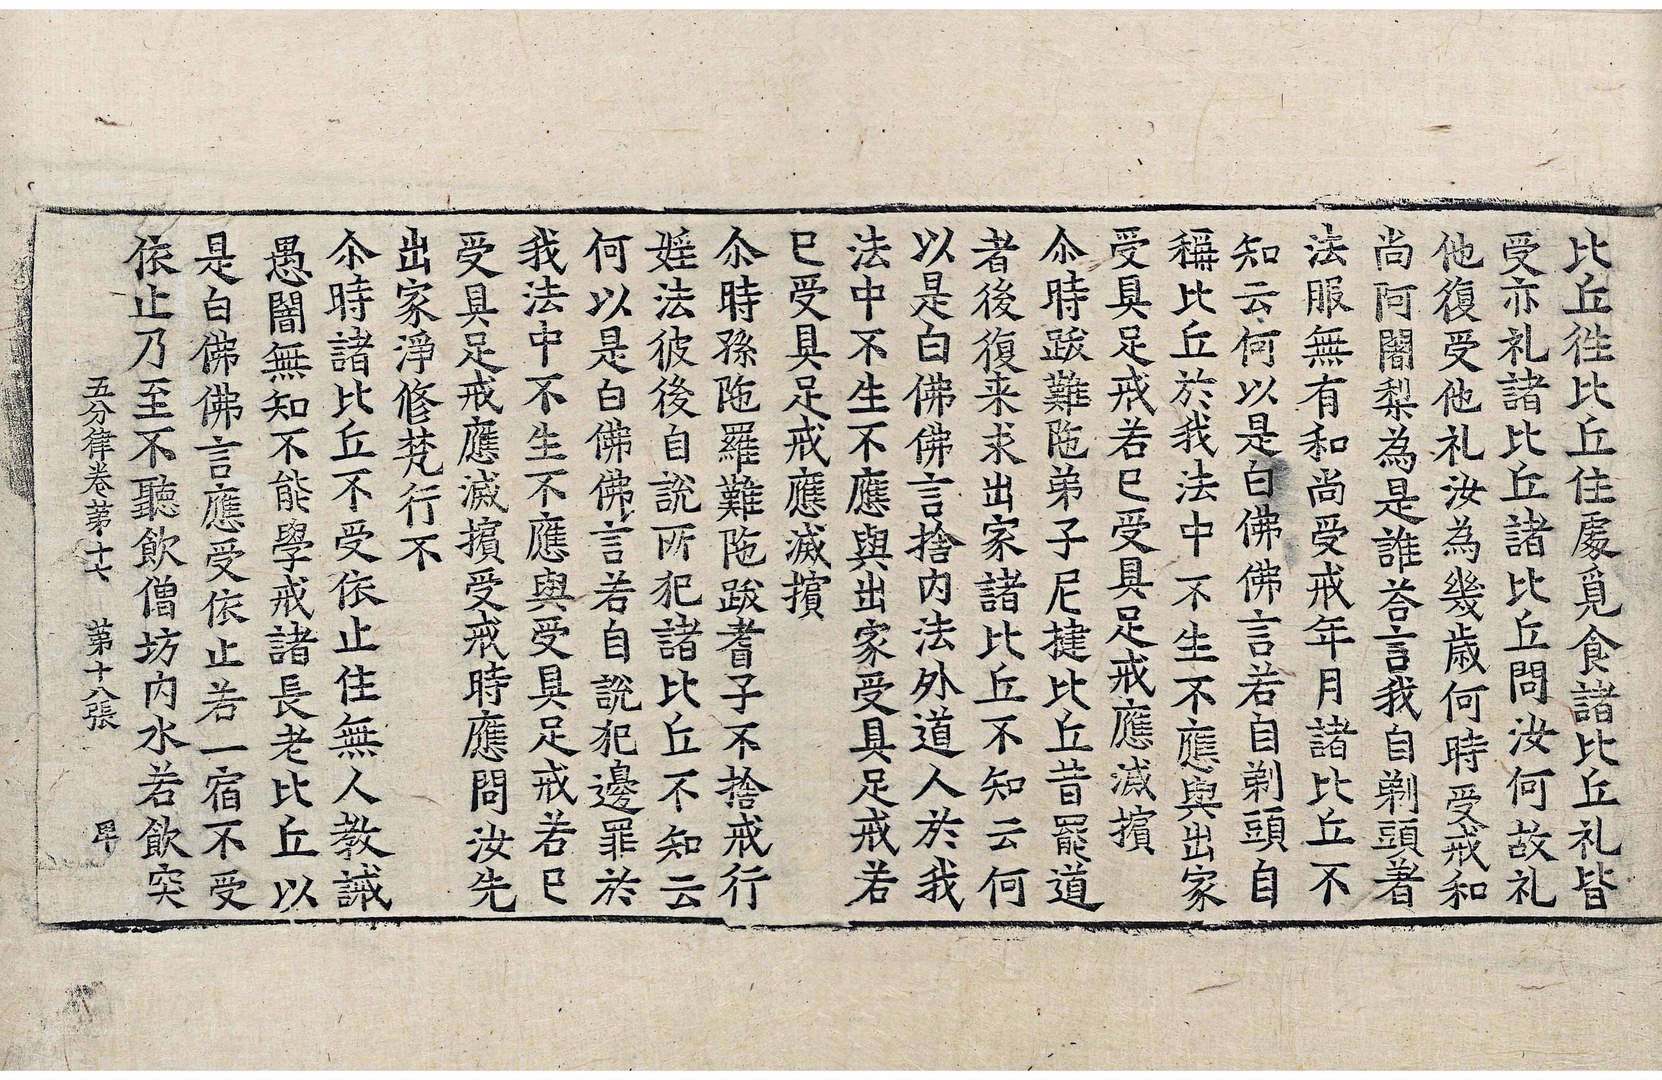 比丘徃比丘住處覓食諸比丘礼皆
受亦礼諸比丘諸比丘問汝何故礼
他復受他礼汝為幾歳何時受戒和
尚阿闍梨為是誰荅言我自剃頭著
法服無有和尚受戒年月諸比丘不
知云何以是白佛佛言若自剃頭自
稱比丘於我法中不生不應與出家
受具足戒若已受具足戒應滅擯
尒時跋難陁弟子尼揵比丘昔罷道
者後復来求出家諸比丘不知云何
以是白佛佛言捨内法外道人於我
法中不生不應與出家受具足戒若
已受具足戒應滅擯
尒時孫陁羅難陁跋耆子不捨戒行
婬法彼後自說所犯諸比丘不知云
何以是白佛佛言若自說犯邊罪於
我法中不生不應與受具足戒若已
受具足戒應滅擯受戒時應問汝先
出家淨修梵行不
尒時諸比丘不受依止住無人教誡
愚闇無知不能學戒諸長老比丘以
是白佛佛言應受依止若一宿不受
依止乃至不聽飲僧坊内水若飲突
五分律卷第十七 第十八張